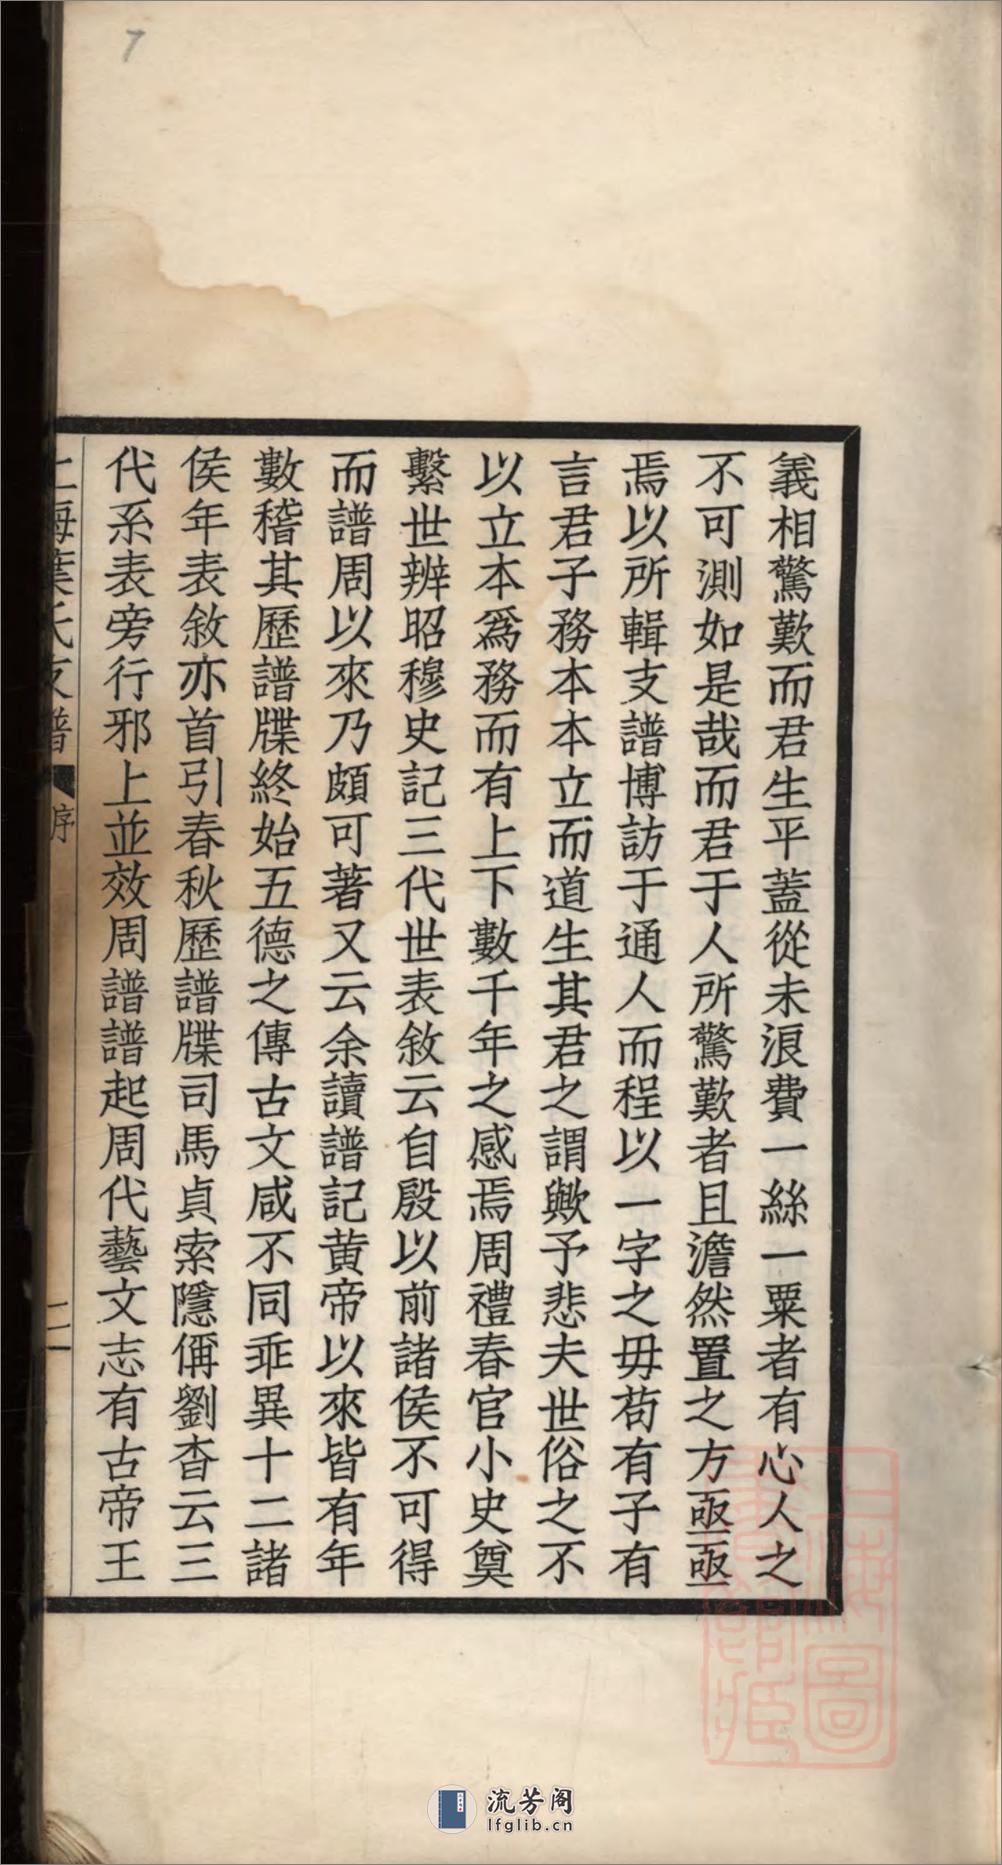 7
義相驚歎而君生平蓋從未浪費一絲一粟者有心人之
不可測如是哉而君于人所驚歎者且澹然置之方亟亟
焉以所輯支譜博訪于通人而程以一字之毋苟有子有
言君子務本本立而道生其君之謂歟予悲夫世俗之不
以立本爲務而有上下數千年之感焉周禮春官小史奠
繫世辨昭穆史記三代世表敘云自殷以前諸侯不可得
而譜周以來乃頗可著又云余讀譜記黄帝以來皆有年
數稽其歷譜牒終始五德之傳古文咸不同乖異十二諸
侯年表敘亦首引春秋歷譜牒司馬貞索隱偁劉杳云三
代系表旁行邪上並效周譜譜起周代藝文志有古帝王
上海葉氏支譜 序 二
上海圖書館藏
流芳阁
lfglib.cn